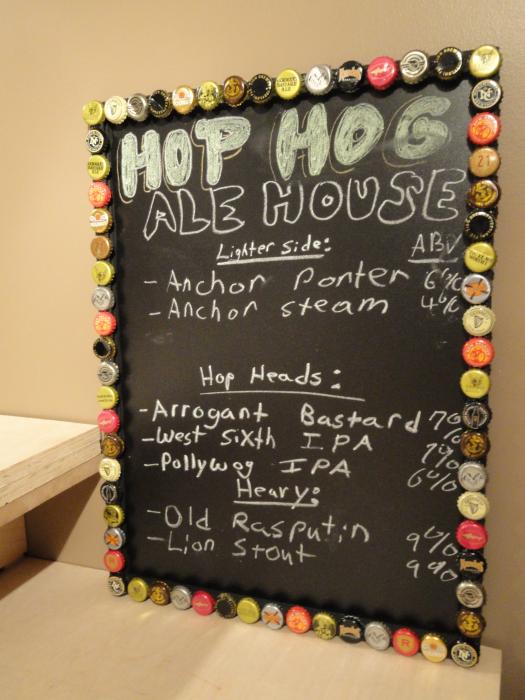 HOP HOG
ALE HOUSE
Lighter Side: ABV
- Anchor Porter 6%
- Anchor steam 4%
Hop Heads:
- Arrogant Bastard 7%
- West Sixth IPA 7%
- Pollywog IPA 6%
Heavy:
- Old Rasputin 9%
- Lion Stout 9%